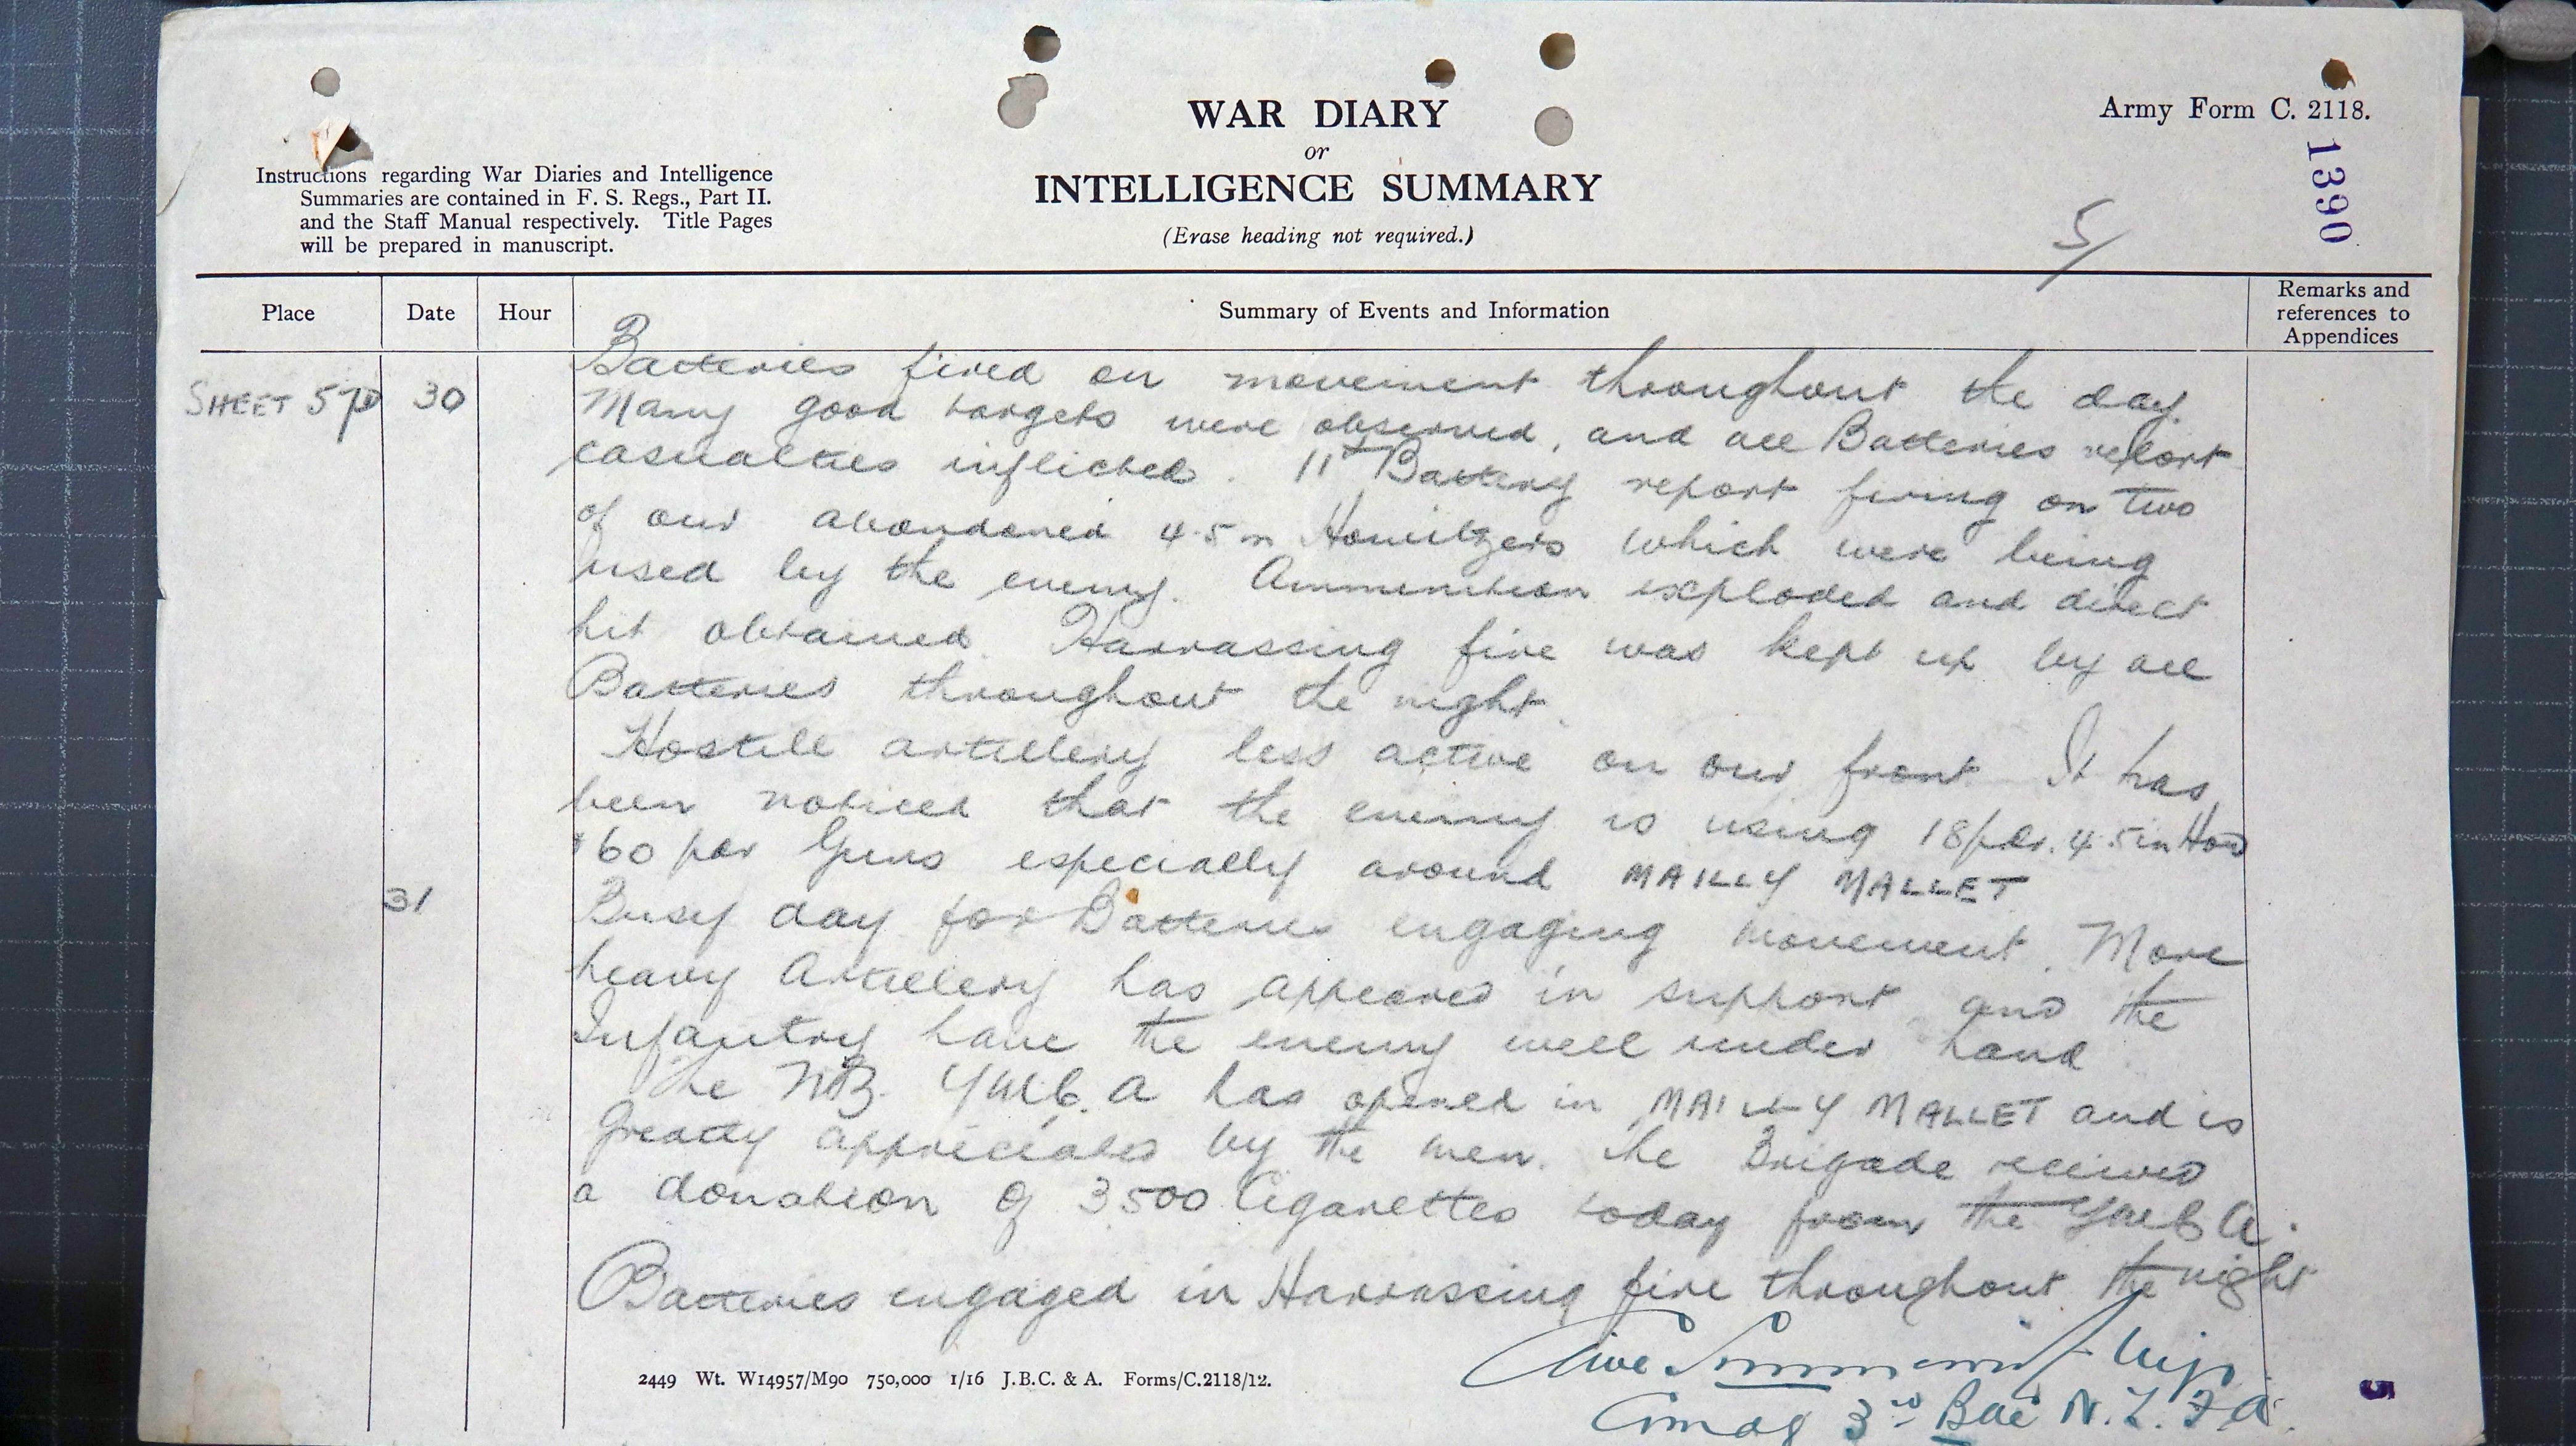 Army Form C. 2118.
WAR DIARY
or
INTELLIGENCE SUMMARY
(Erase heading not required.)
Instructions regarding War Diaries and Intelligence
Summaries are contained in F. S. Regs., Part II.
and the Staff Manual respectively. Title Pages
will be prepared in manuscript.
1390
5/
Place
Date
Hour
Summary of Events and Information
Remarks and
references to
Appendices
SHEET 57D
30
Batteries fired on movement throughout the day.
Many good targets were observed, and all Batteries report
casualties inflicted. 11th Battery report firing on two
of our abandoned 4.5 in Howitzers which were being
used by the enemy. Ammunition exploded and direct
hit obtained. Harrassing fire was kept up by all
Batteries throughout the night.
Hostile artillery less active on our front. It has
been noticed that the enemy is using 18 pdr. 4.5 in How
60 pdr Guns especially around MAILLY MALLET
31
Busy day for Batteries engaging movement. More
heavy Artillery has appeared in support and the
Infantry have the enemy well under hand
The N.Z. Y.M.C.A has opened in MAILLY MALLET and is
greatly appreciated by the men. The Brigade received
a donation of 3500 Cigarettes today from the YMCA.
Batteries engaged in Harrassing fire throughout the night
Major
Comdg 3rd Bde N.Z.F.A.
2449 Wt. W14957/M90 750,000 1/16 J.B.C. & A. Forms/C.2118/12.
5